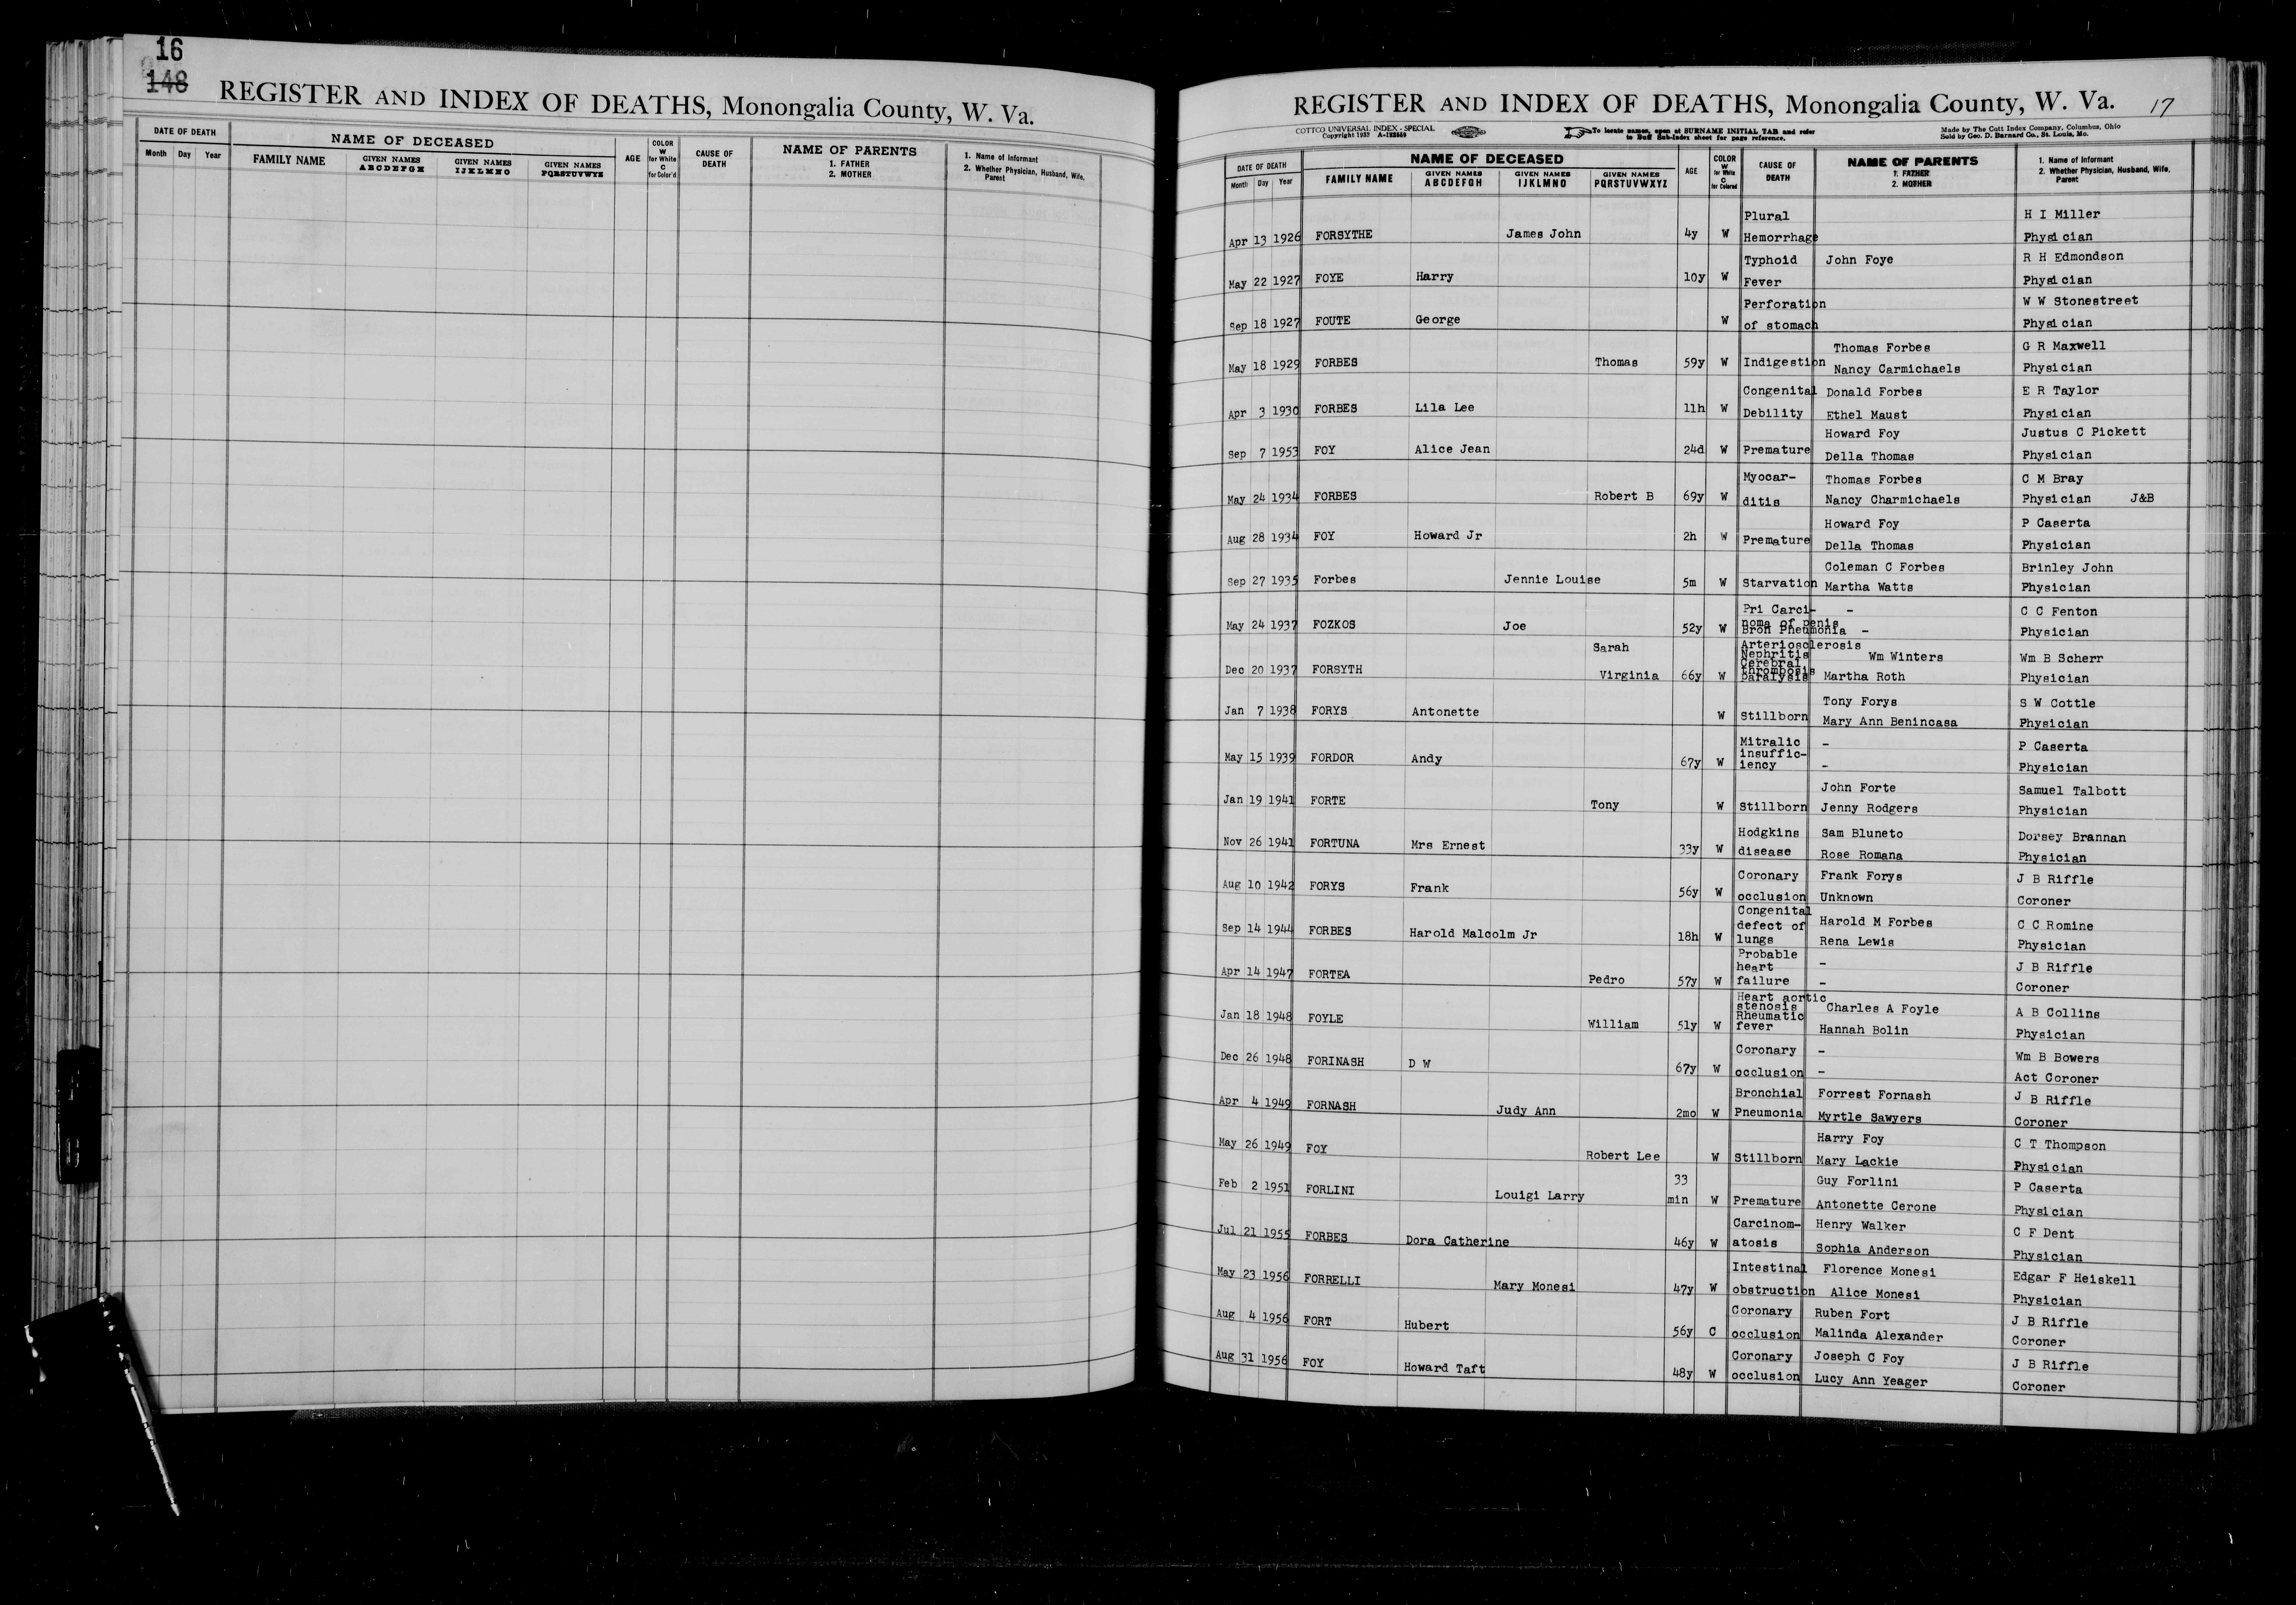 16
148
REGISTER AND INDEX OF DEATHS, Monongalia County, W. Va.
DATE OF DEATH
NAME OF DECEASED
AGE
COLOR W for White C for Color'd
CAUSE OF DEATH
NAME OF PARENTS
1. FATHER
2. MOTHER
1. Name of Informant
2. Whether Physician, Husband, Wife, Parent
Month Day Year
FAMILY NAME
GIVEN NAMES ABCDEFGH
GIVEN NAMES IJKLMNO
GIVEN NAMES PQRSTUVWXYZ
REGISTER AND INDEX OF DEATHS, Monongalia County, W. Va. 17
COTTCO UNIVERSAL INDEX - SPECIAL
Copyright 1937
To locate names, open at SURNAME INITIAL TAB and refer
to Buff Sub-Index sheet for page reference.
Made by The Cott Index Company, Columbus, Ohio
Sold by Geo. D. Barnard Co., St. Louis, Mo.
DATE OF DEATH
NAME OF DECEASED
AGE
COLOR W for White C for Colored
CAUSE OF DEATH
NAME OF PARENTS
1. FATHER
2. MOTHER
1. Name of Informant
2. Whether Physician, Husband, Wife, Parent
Month Day Year
FAMILY NAME
GIVEN NAMES ABCDEFGH
GIVEN NAMES IJKLMNO
GIVEN NAMES PQRSTUVWXYZ
Plural H I Miller
Apr 13 1926 FORSYTHE James John 4y W Hemorrhage Physician
Typhoid John Foye R H Edmondson
May 22 1927 FOYE Harry 10y W Fever Physician
Perforation W W Stonestreet
Sep 18 1927 FOUTE George W of stomach Physician
Thomas Forbes G R Maxwell
May 18 1929 FORBES Thomas 59y W Indigestion Nancy Carmichaels Physician
Congenital Donald Forbes E R Taylor
Apr 3 1930 FORBES Lila Lee 11h W Debility Ethel Maust Physician
Howard Foy Justus C Pickett
Sep 7 1953 FOY Alice Jean 24d W Premature Della Thomas Physician
Myocar- Thomas Forbes C M Bray
May 24 1934 FORBES Robert B 69y W ditis Nancy Charmichaels Physician J&B
Howard Foy P Caserta
Aug 28 1934 FOY Howard Jr 2h W Premature Della Thomas Physician
Coleman C Forbes Brinley John
Sep 27 1935 Forbes Jennie Louise 5m W Starvation Martha Watts Physician
Pri Carci- - C C Fenton
noma of penis
May 24 1937 FOZKOS Joe 52y W Bron Pneumonia - Physician
Sarah Arteriosclerosis
Nephritis Wm Winters Wm B Scherr
Cerebral
thrombosis
Dec 20 1937 FORSYTH Virginia 66y W paralysis Martha Roth Physician
Tony Forys S W Cottle
Jan 7 1938 FORYS Antonette W Stillborn Mary Ann Benincasa Physician
Mitralic - P Caserta
insuffic-
May 15 1939 FORDOR Andy 67y W iency - Physician
John Forte Samuel Talbott
Jan 19 1941 FORTE Tony W Stillborn Jenny Rodgers Physician
Hodgkins Sam Bluneto Dorsey Brannan
Nov 26 1941 FORTUNA Mrs Ernest 33y W disease Rose Romana Physician
Coronary Frank Forys J B Riffle
Aug 10 1942 FORYS Frank 56y W occlusion Unknown Coroner
Congenital
defect of Harold M Forbes C C Romine
Sep 14 1944 FORBES Harold Malcolm Jr 18h W lungs Rena Lewis Physician
Probable
heart - J B Riffle
Apr 14 1947 FORTEA Pedro 57y W failure - Coroner
Heart aortic
stenosis Charles A Foyle A B Collins
Rheumatic
Jan 18 1948 FOYLE William 51y W fever Hannah Bolin Physician
Coronary - Wm B Bowers
Dec 26 1948 FORINASH D W 67y W occlusion - Act Coroner
Bronchial Forrest Fornash J B Riffle
Apr 4 1949 FORNASH Judy Ann 2mo W Pneumonia Myrtle Sawyers Coroner
Harry Foy C T Thompson
May 26 1949 FOY Robert Lee W Stillborn Mary Lackie Physician
33 Guy Forlini P Caserta
Feb 2 1951 FORLINI Louigi Larry min W Premature Antonette Cerone Physician
Carcinom- Henry Walker C F Dent
Jul 21 1955 FORBES Dora Catherine 46y W atosis Sophia Anderson Physician
Intestinal Florence Monesi Edgar F Heiskell
May 23 1956 FORRELLI Mary Monesi 47y W obstruction Alice Monesi Physician
Coronary Ruben Fort J B Riffle
Aug 4 1956 FORT Hubert 56y C occlusion Malinda Alexander Coroner
Coronary Joseph C Foy J B Riffle
Aug 31 1956 FOY Howard Taft 48y W occlusion Lucy Ann Yeager Coroner